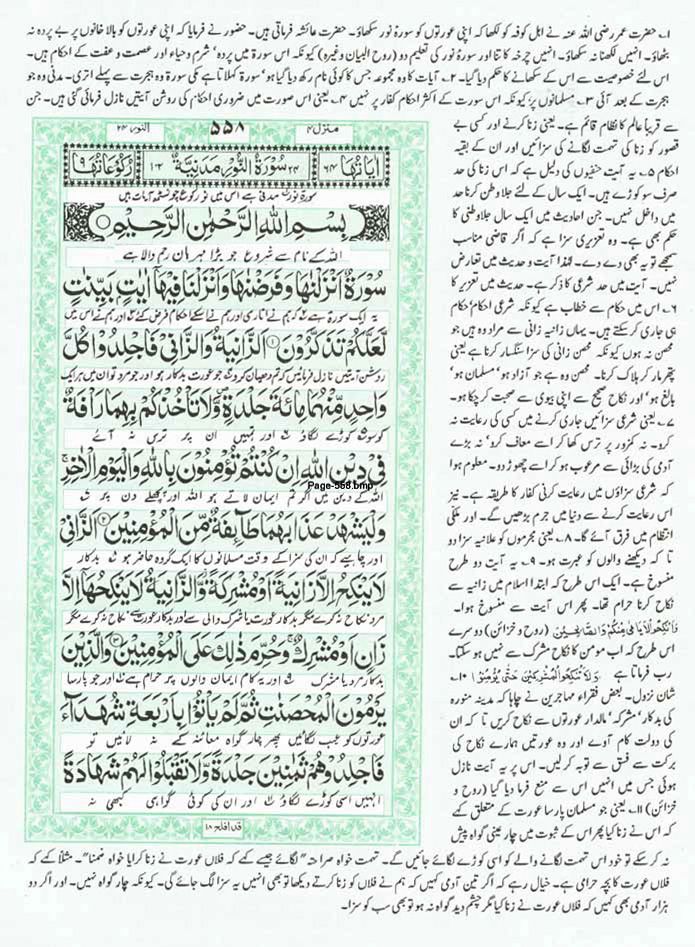 ۱۔ حضرت عمر رضی اللہ عنہ نے اہل کوفہ کو لکھا کہ اپنی عورتوں کو سورۂ نور سکھاؤ۔ حضرت عائشہ فرماتی ہیں۔ حضور نے فرمایا کہ اپنی عورتوں کو بالا خانوں پر بے پردہ نہ
بٹھاؤ۔ انہیں لکھنا نہ سکھاؤ۔ انہیں چرخہ کاتنا اور سورۂ نور کی تعلیم دو (روح البیان وغیرہ) کیونکہ اس سورۃ میں پردہ' شرم و حیاء اور عصمت و عفت کے احکام ہیں۔
اس لئے خصوصیت سے اس کے سکھانے کا حکم دیا گیا۔ ۲۔ آیات کا وہ مجموعہ جس کا کوئی نام رکھ دیا گیا ہو' سورۃ کہلاتا ہے مکی سورۃ وہ ہجرت سے پہلے اتری۔ مدنی وہ جو
ہجرت کے بعد آئی ۳۔ مسلمانوں پر' کیونکہ اس سورت کے اکثر احکام کفار پر نہیں ۴۔ یعنی اس صورت میں ضروری احکام کی روشن آیتیں نازل فرمائی گئی ہیں۔ جن
سے قریباً عالم کا نظام قائم ہے۔ یعنی زنا کرنے اور کسی بے
قصور کو زنا کی تہمت لگانے کی سزائیں اور ان کے بقیہ
احکام ۵۔ یہ آیت حنفیوں کی دلیل ہے کہ اس زنا کی حد
صرف سو کوڑے ہیں۔ ایک سال کے لئے جلا وطن کرنا حد
میں داخل نہیں۔ جن احادیث میں ایک سال جلاوطنی کا
حکم بھی ہے۔ وہ تعزیری سزا ہے کہ اگر قاضی مناسب
سمجھے تو یہ بھی دے دے۔ لہٰذا آیت و حدیث میں تعارض
نہیں۔ آیت میں حد شرعی کا ذکر ہے۔ حدیث میں تعزیر کا
۶۔ اس میں حکام سے خطاب ہے کیونکہ شرعی احکام' حکام
ہی جاری کر سکتے ہیں۔ یہاں زانیہ زانی سے مراد وہ ہیں جو
محصن نہ ہوں کیونکہ محصن زانی کی سزا سنگسار کرنا ہے یعنی
پتھر مار کر ہلاک کرنا۔ محصن وہ ہے جو آزاد ہو' مسلمان ہو'
بالغ ہو' اور نکاح صحیح سے اپنی بیوی سے صحبت کر چکا ہو۔
۷۔ یعنی شرعی سزائیں جاری کرنے میں کسی کی رعایت نہ
کرو۔ نہ کمزور پر ترس کھا کر اسے معاف کرو' نہ بڑے
آدمی کی بڑائی سے مرعوب ہو کر اسے چھوڑ دو۔ معلوم ہوا
کہ شرعی سزاؤں میں رعایت کرنی کفار کا طریقہ ہے۔ نیز
اس رعایت کرنے سے دنیا میں جرم بڑھیں گے۔ اور ملکی
انتظام میں فرق آئے گا۔ ۸۔ یعنی مجرموں کو علانیہ سزا دو
تا کہ دیکھنے والوں کو عبرت ہو۔ ۹۔ یہ آیت دو طرح
منسوخ ہے۔ ایک اس طرح کہ ابتدا اسلام میں زانیہ سے
نکاح کرنا حرام تھا۔ پھر اس آیت سے منسوخ ہوا۔
فَانْكِحُوا الْاَيَامٰى مِنْكُمْ وَالصَّالِحِيْنَ (روح و خزائن) دوسرے
اس طرح کہ اب مومن کا نکاح مشرک سے نہیں ہو سکتا۔
رب فرماتا ہے وَلَا تَنْكِحُوا الْمُشْرِكِيْنَ حَتّٰى يُؤْمِنُوْا ۱۰۔
شان نزول۔ بعض فقراء مہاجرین نے چاہا کہ مدینہ منورہ
کی بدکار' مشرکہ' مالدار عورتوں سے نکاح کریں تا کہ ان
کی دولت کام آوے اور وہ عورتیں ہمارے نکاح کی
برکت سے فسق سے توبہ کر لیں۔ اس پر یہ آیت نازل
ہوئی جس میں انہیں اس سے منع فرما دیا گیا (روح و
خزائن) ۱۱۔ یعنی جو مسلمان پارسا عورت کے متعلق کہے
کہ اس نے زنا کیا پھر اس کے ثبوت میں چار عینی گواہ پیش
النور ۲۴ ۵۵۸ منزل ۴
اٰيَاتُهَا ۶۴ ۲۴ سُوْرَةُ النُّوْرِ مَدَنِيَّةٌ ۱۰۲ رُكُوْعَاتُهَا ۹
سورۃ نور مدنی ہے اس میں نو رکوع چونسٹھ آیات ہیں
بِسْمِ اللهِ الرَّحْمٰنِ الرَّحِيْمِ
اللہ کے نام سے شروع جو بڑا مہربان رحم والا ہے
سُوْرَةٌ اَنْزَلْنٰهَا وَفَرَضْنٰهَا وَاَنْزَلْنَا فِيْهَاۤ اٰيٰتٍۭ بَيِّنٰتٍ
یہ ایک سورۃ ہے کہ ہم نے اتاری اور ہم نے اسکے احکام فرض کئے اور ہم نے اس میں
لَّعَلَّكُمْ تَذَكَّرُوْنَ ۱ اَلزَّانِيَةُ وَالزَّانِيْ فَاجْلِدُوْا كُلَّ
روشن آیتیں نازل فرمائیں کہ تم دھیان کرو جو عورت بدکار ہو اور جو مرد تو ان میں ہر ایک
وَاحِدٍ مِّنْهُمَا مِائَةَ جَلْدَةٍ وَّلَا تَاْخُذْكُمْ بِهِمَا رَاْفَةٌ
کو سو کوڑے لگاؤ اور تمہیں ان پر ترس نہ آئے
فِيْ دِيْنِ اللهِ اِنْ كُنْتُمْ تُؤْمِنُوْنَ بِاللهِ وَالْيَوْمِ الْاٰخِرِ
اللہ کے دین میں اگر تم ایمان لاتے ہو اللہ اور پچھلے دن پر
Page-558.bmp
وَلْيَشْهَدْ عَذَابَهُمَا طَآئِفَةٌ مِّنَ الْمُؤْمِنِيْنَ ۲ اَلزَّانِيْ
اور چاہیے کہ ان کی سزا کے وقت مسلمانوں کا ایک گروہ حاضر ہو بدکار
لَا يَنْكِحُ اِلَّا زَانِيَةً اَوْ مُشْرِكَةً وَّالزَّانِيَةُ لَا يَنْكِحُهَاۤ اِلَّا
مرد نکاح نہ کرے مگر بدکار عورت یا شرک والی سے اور بدکار عورت سے نکاح نہ کرے مگر
زَانٍ اَوْ مُشْرِكٌ وَحُرِّمَ ذٰلِكَ عَلَى الْمُؤْمِنِيْنَ ۳ وَالَّذِيْنَ
بدکار مرد یا مشرک اور یہ کام ایمان والوں پر حرام ہے اور جو پارسا
يَرْمُوْنَ الْمُحْصَنٰتِ ثُمَّ لَمْ يَاْتُوْا بِاَرْبَعَةِ شُهَدَآءَ
عورتوں کو عیب لگائیں پھر چار گواہ معائنہ کے نہ لائیں تو
فَاجْلِدُوْهُمْ ثَمٰنِيْنَ جَلْدَةً وَّلَا تَقْبَلُوْا لَهُمْ شَهَادَةً
انہیں اسی کوڑے لگاؤ اور ان کی کوئی گواہی کبھی نہ
قد افلح ۱۸
نہ کر سکے تو خود اس تہمت لگانے والے کو اسی کوڑے لگائے جائیں گے۔ تہمت خواہ صراحتہً لگائے جیسے کہے کہ فلاں عورت نے زنا کرایا خواہ ضمناً۔ مثلاً کہے کہ
فلاں عورت کا بچہ حرامی ہے۔ خیال رہے کہ اگر تین آدمی کہیں کہ ہم نے فلاں کو زنا کرتے دیکھا تو بھی انہیں یہ سزا لگ جائے گی۔ کیونکہ چار گواہ نہیں۔ اور اگر دو
ہزار آدمی بھی کہیں کہ فلاں عورت نے زنا کیا مگر چشم دید گواہ نہ ہو تو بھی سب کو سزا۔